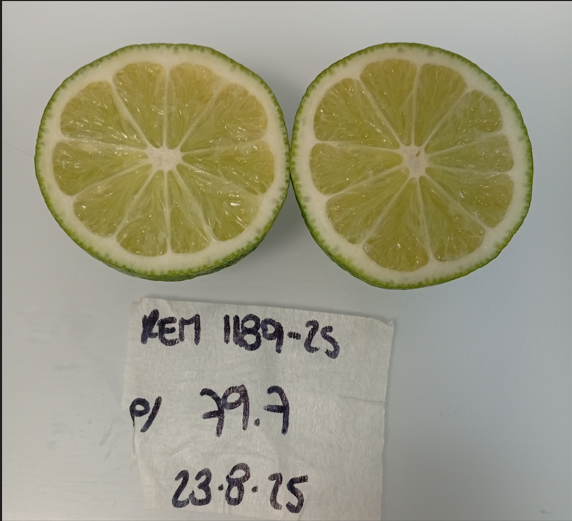 REM 1189-25
P/ 79.7
23.8.25